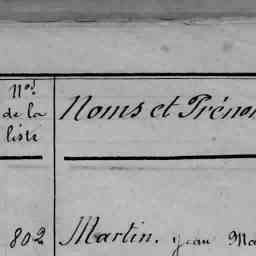 Nos
de la
liste
Noms et Préno
802
Martin. jean Ma